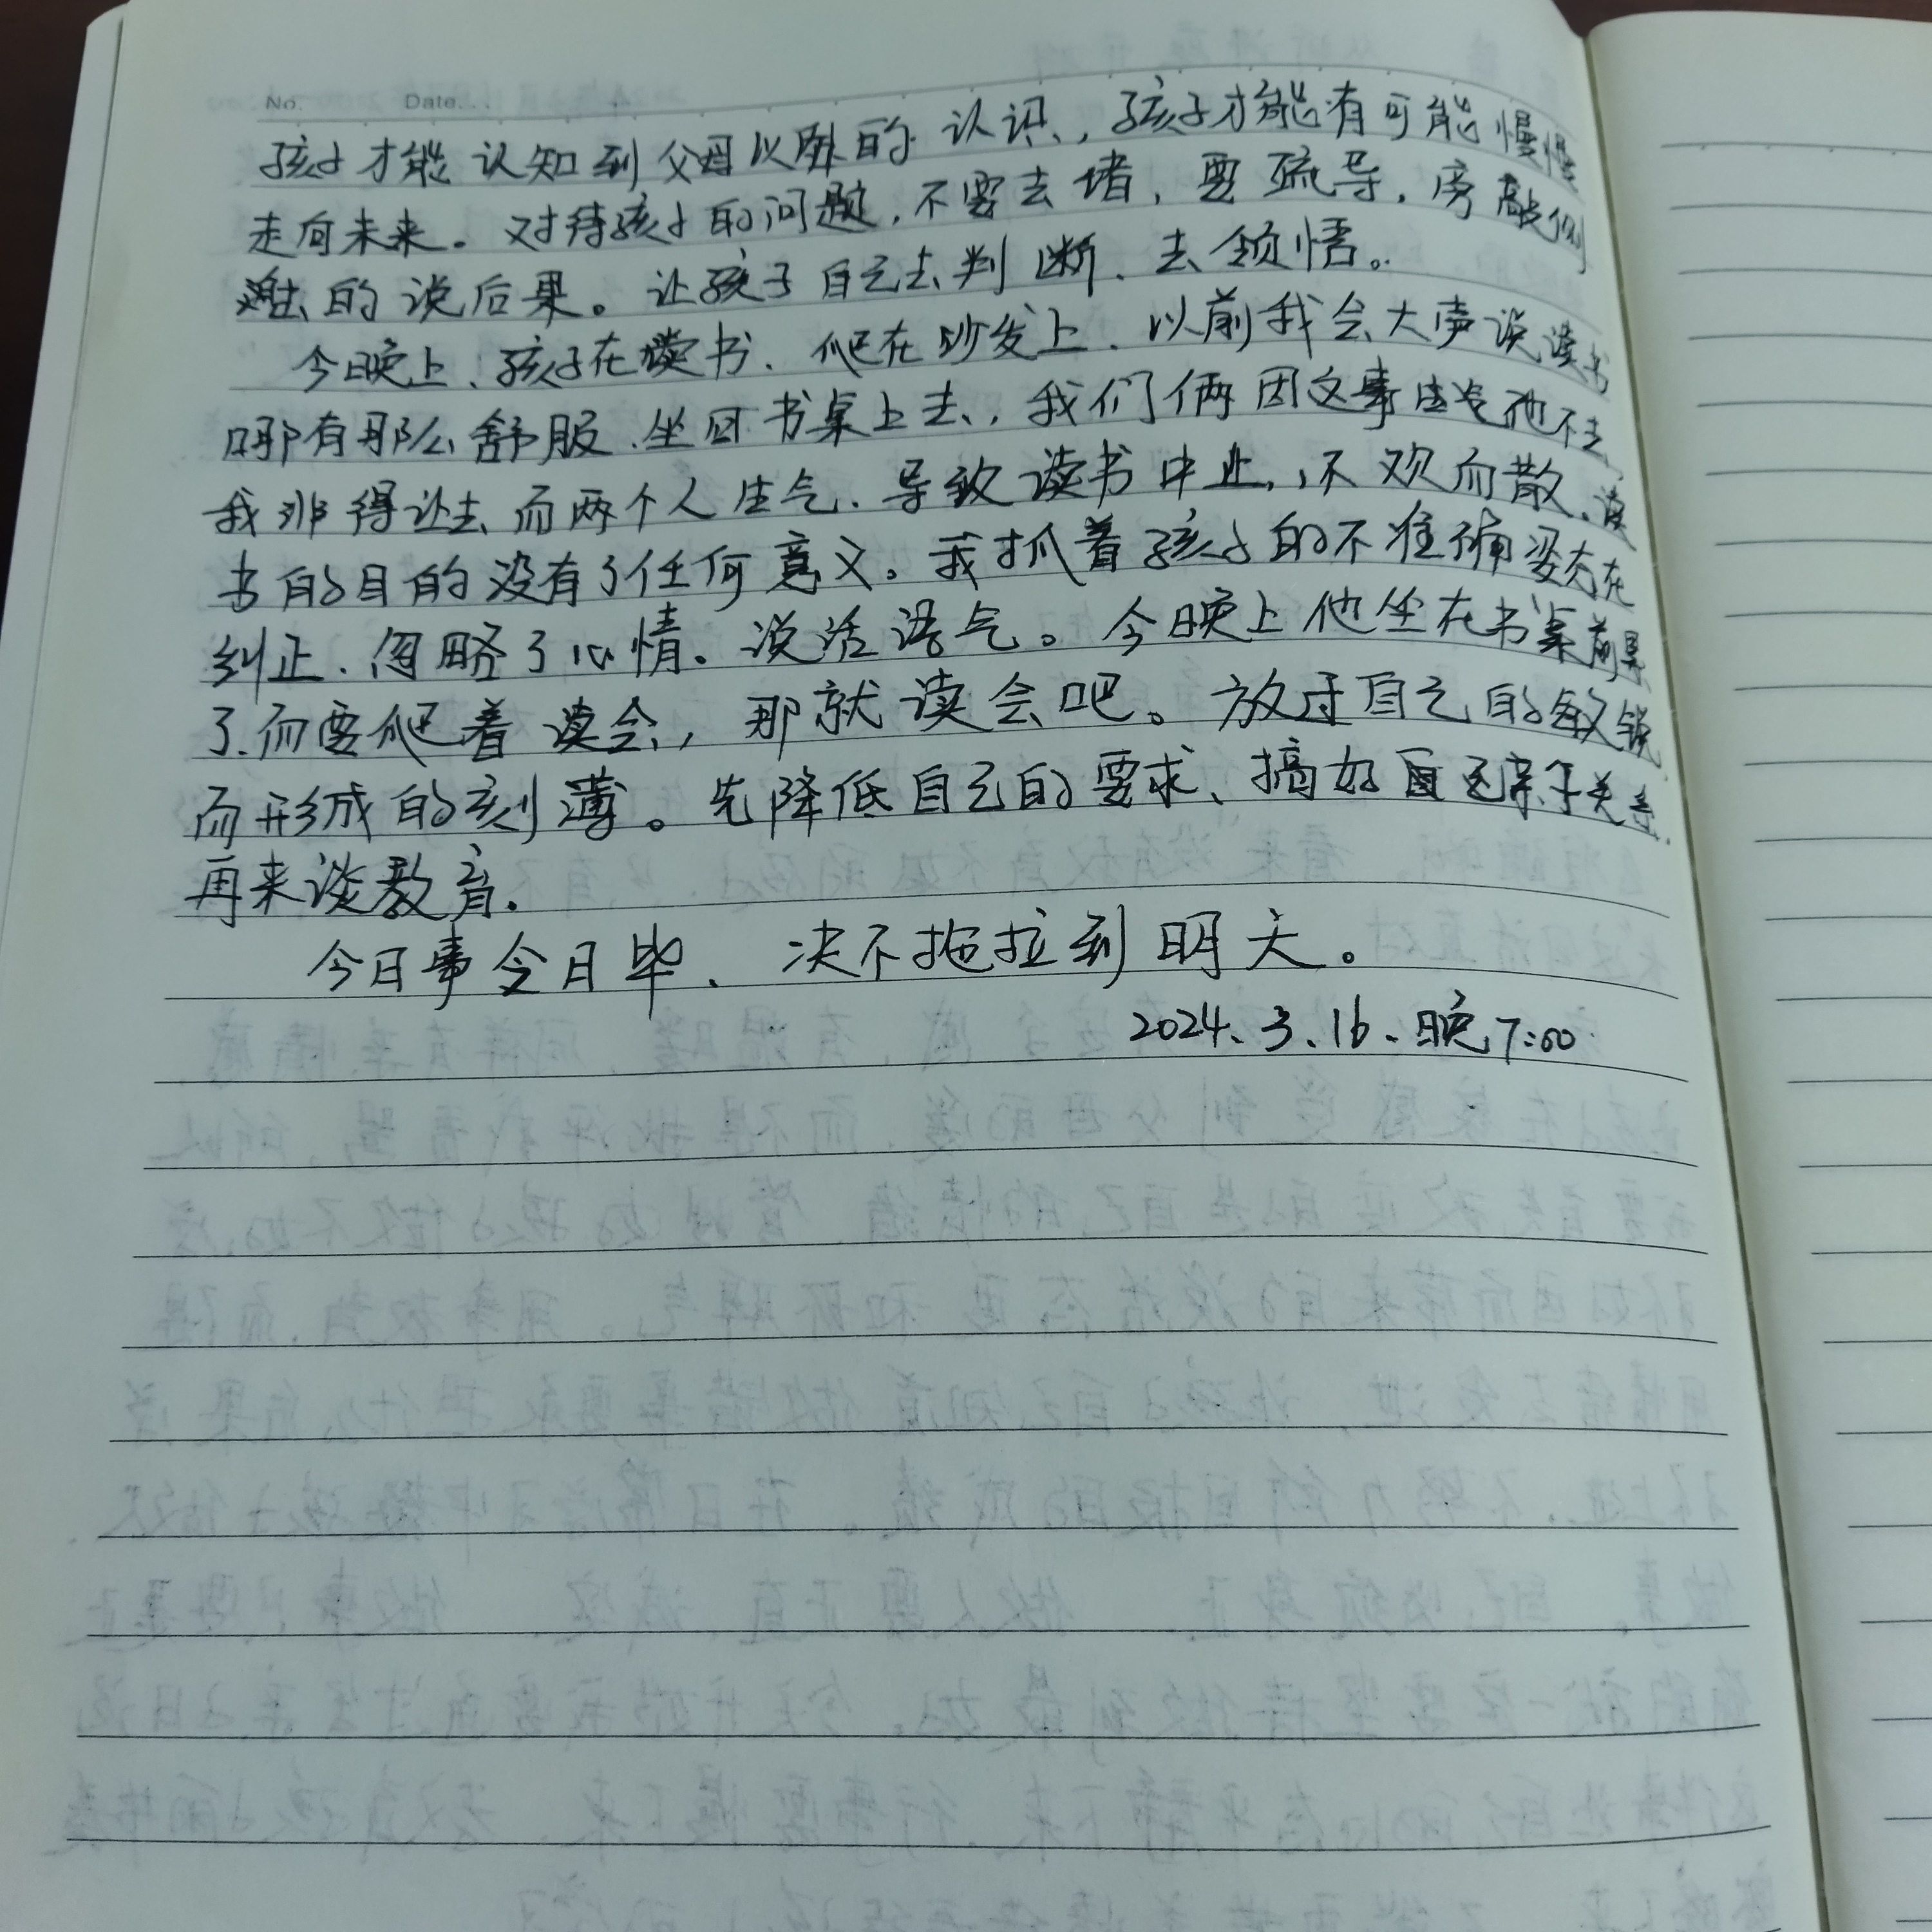 No.    Date...
孩子才能认知到父母以外的认识,孩子才能有可能慢慢
走向未来。对待孩子的问题,不要去堵,要疏导,旁敲侧
的说后果。让孩子自己去判断、去领悟。
今晚上、孩子在读书、爬在沙发上、以前我会大声说读书
哪有那么舒服、坐回书桌上去,我们俩因这事生气他不去、
我非得让去而两个人生气、导致读书中止,不欢而散、读
书的目的没有了任何意义。我抓着孩子的不准确姿态在
纠正、忽略了心情。说话语气。今晚上他坐在书桌前累
了、而要爬着读会,那就读会吧。放于自己的敏锐
而形成的刻薄。先降低自己的要求、搞好亲子关系
再来谈教育.
今日事今日毕、决不拖拉到明天。
2024、3、16、晚7:00